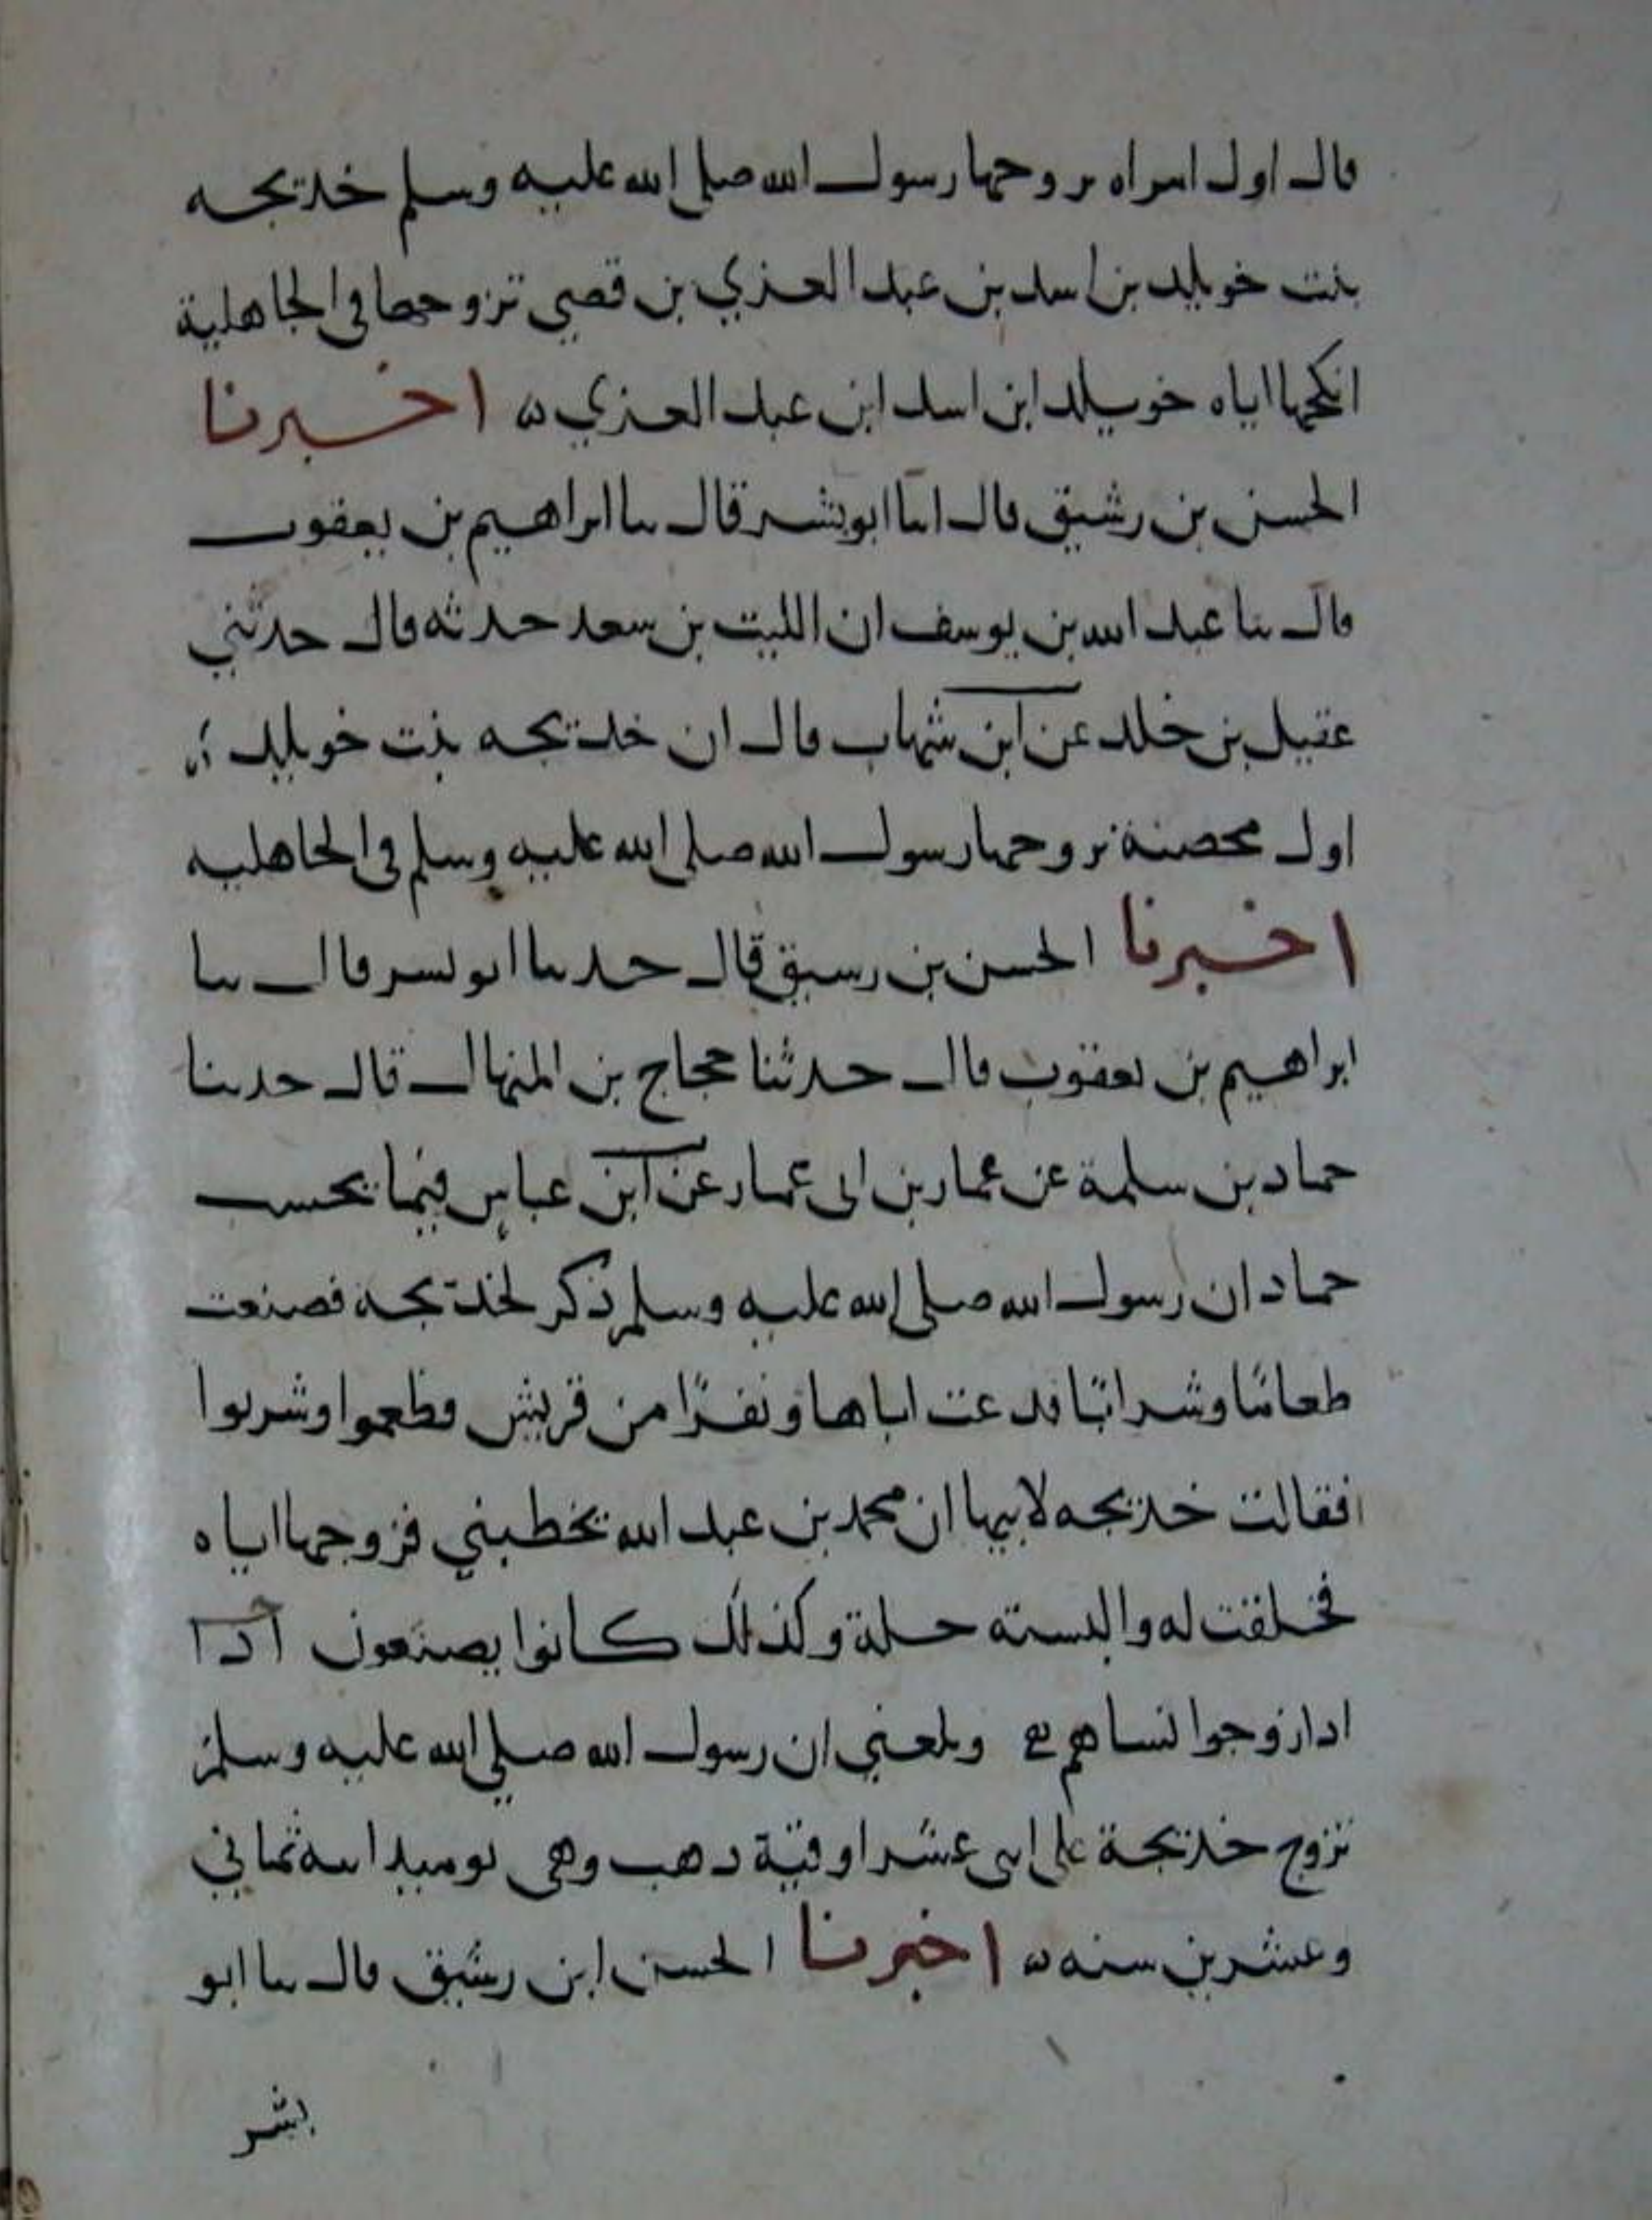 قال اول امراه تزوجها رسول الله صلى الله عليه وسلم خديجه
بنت خويلد بن اسد بن عبد العزي بن قصي تزوجها في الجاهلية
انكحها اياه خويلد ابن اسد ابن عبد العزي ه اخبرنا
الحسن بن رشيق قال انبا ابو بشر قال ثنا ابراهيم بن يعقوب
قال ثنا عبد الله بن يوسف ان الليث بن سعد حدثه قال حدثني
عقيل بن خلد عن ابن شهاب قال ان خديجه بنت خويلد
اول محصنة تزوجها رسول الله صلى الله عليه وسلم في الجاهليه
اخبرنا الحسن بن رشيق قال حدثنا ابو بشر قال ثنا
ابراهيم بن يعقوب قال حدثنا حجاج بن المنهال قال حدثنا
حماد بن سلمة عن عمار بن ابي عمار عن ابن عباس فيما يحسب
حماد ان رسول الله صلى الله عليه وسلم ذكر لخديجه فصنعت
طعاما وشرابا فدعت اباها ونفرا من قريش فطعموا وشربوا
فقالت خديجه لابيها ان محمد بن عبد الله يخطبني فزوجها اياه
فخلقت له والبسته حلة وكذلك كانوا يصنعون اذا
ادا زوجوا نساهم وبلغني ان رسول الله صلي الله عليه وسلم
تزوج خديجة على اثنى عشر اوقية دهب وهي يوميذ ابنه ثماني
وعشرين سنه ه اخبرنا الحسن ابن رشيق قال ثنا ابو
بشر